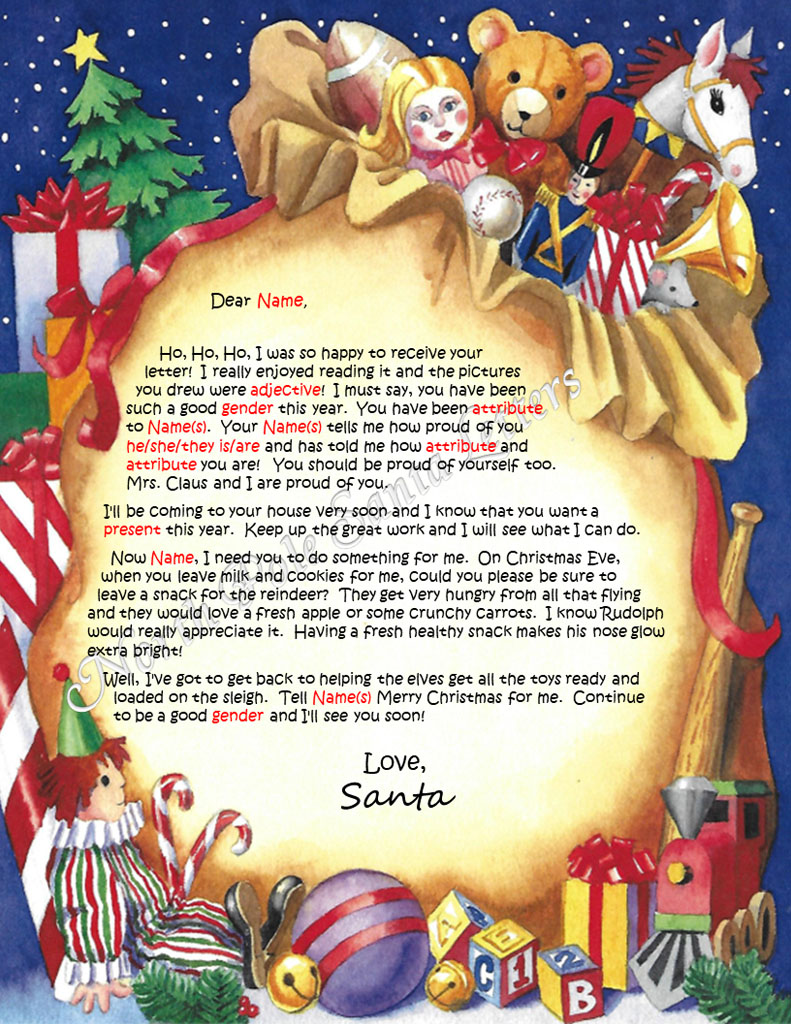 Dear Name,
Ho, Ho, Ho, I was so happy to receive your
letter!  I really enjoyed reading it and the pictures
you drew were adjective!  I must say, you have been
such a good gender this year.  You have been attribute
to Name(s).  Your Name(s) tells me how proud of you
he/she/they is/are and has told me how attribute and
attribute you are!  You should be proud of yourself too.
Mrs. Claus and I are proud of you.
I'll be coming to your house very soon and I know that you want a
present this year.  Keep up the great work and I will see what I can do.
Now Name, I need you to do something for me.  On Christmas Eve,
when you leave milk and cookies for me, could you please be sure to
leave a snack for the reindeer?  They get very hungry from all that flying
and they would love a fresh apple or some crunchy carrots.  I know Rudolph
would really appreciate it.  Having a fresh healthy snack makes his nose glow
extra bright!
Well, I've got to get back to helping the elves get all the toys ready and
loaded on the sleigh.  Tell Name(s) Merry Christmas for me.  Continue
to be a good gender and I'll see you soon!
Love,
Santa
North Pole Santa Letters
A
C
B
C
1
2
B